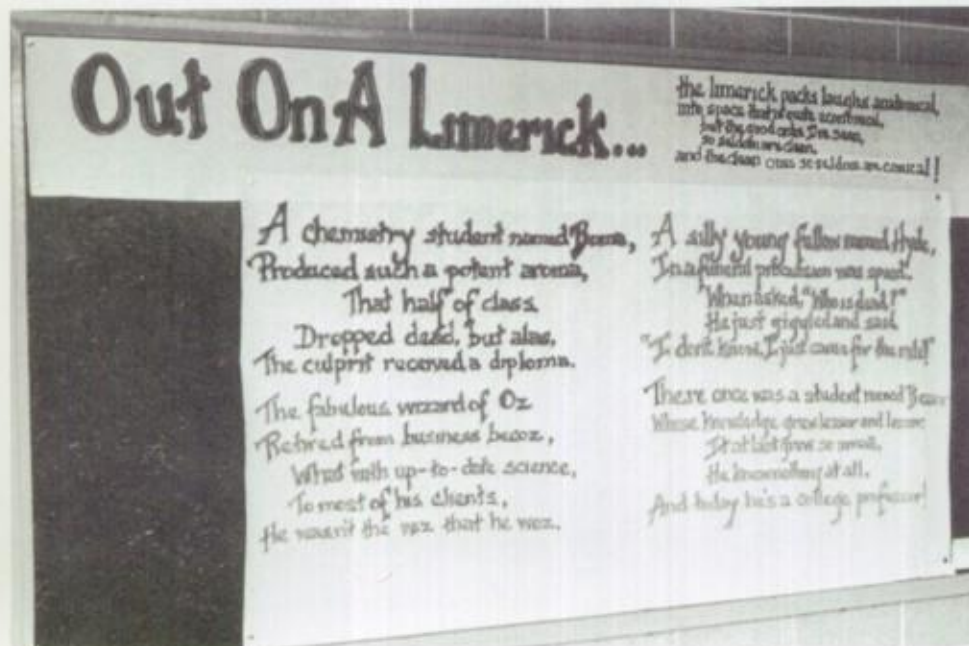 Out On A Limerick...
the limerick packs laughs anatomical,
into space that is quite economical,
but the good ones I've seen,
so seldom are clean,
and the clean ones so seldom are comical!
A chemistry student named
Produced such a potent aroma,
That half of class
Dropped dead, but alas,
The culprit received a diploma.
The fabulous wizard of Oz
Retired from business becoz,
What with up-to-date science,
To most of his clients,
He wasn't the woz that he woz.
A silly young fellow named Hyde,
In a funeral procession was spied.
"When asked, "Who is dead?"
He just giggled and said
"I don't know, I just came for the ride!"
There once was a student named
Whose knowledge grew lesser and lesser
It at last grew so small,
He knew nothing at all,
And today he's a college professor!